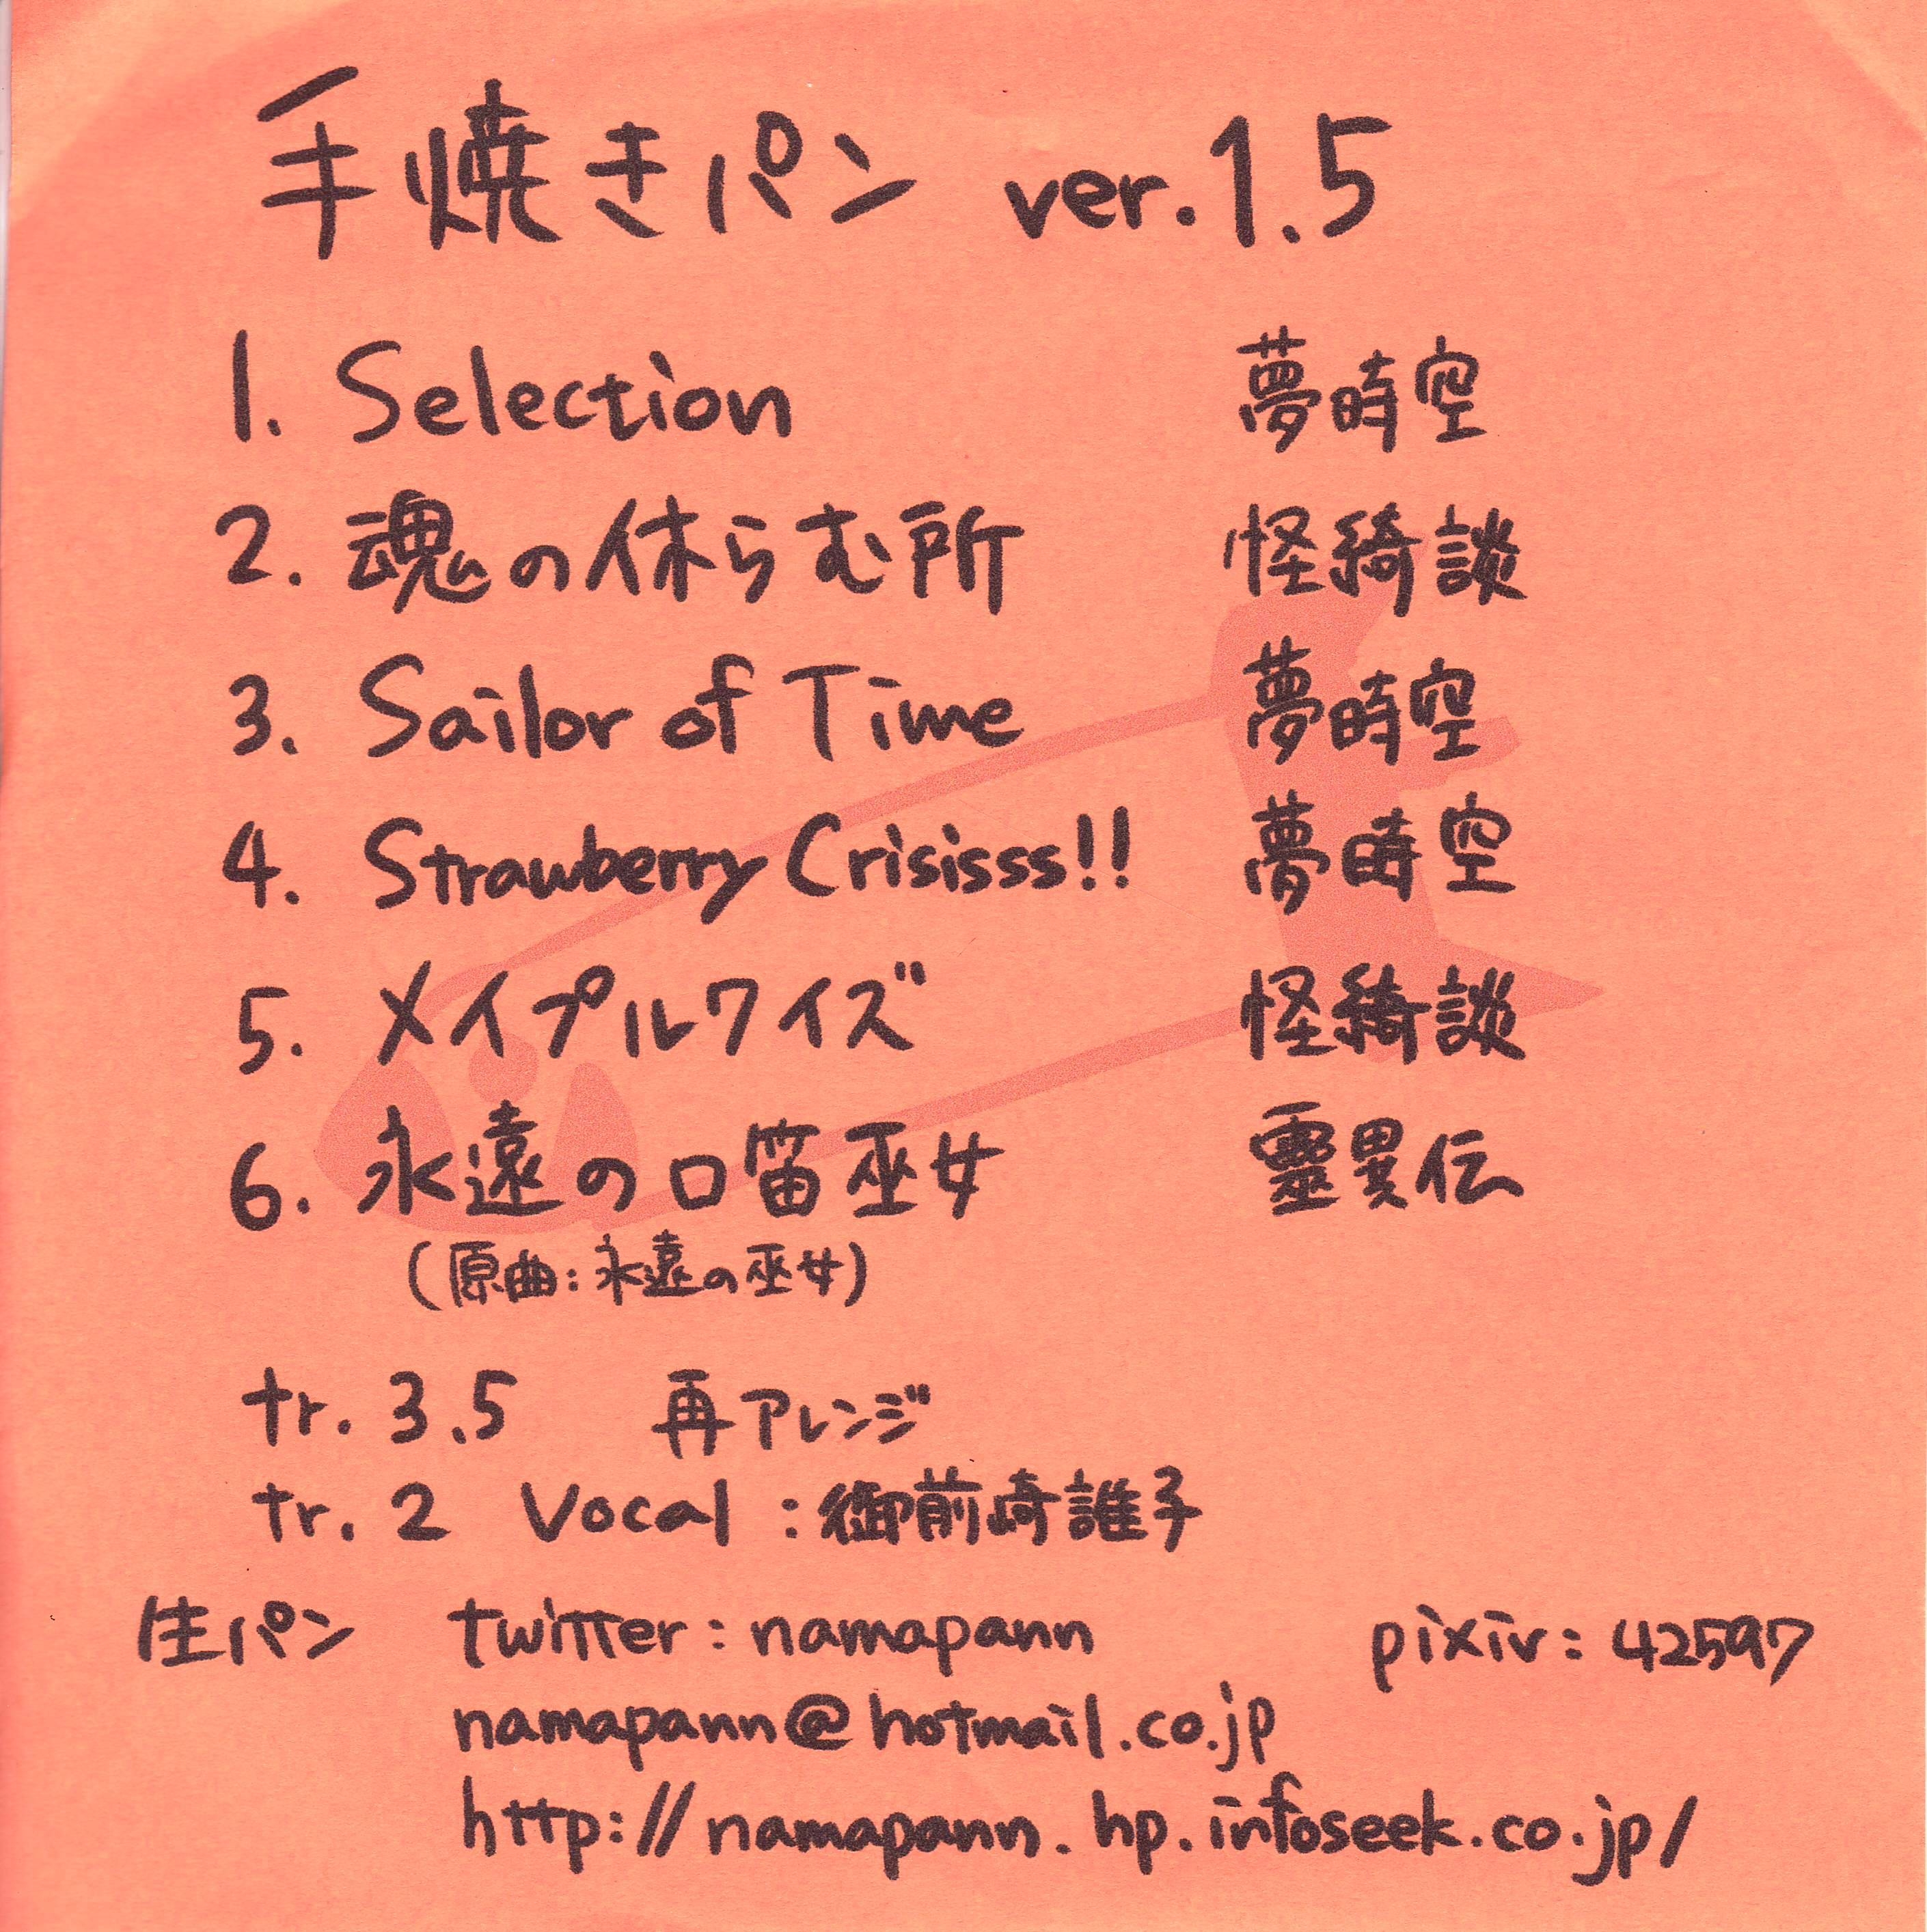 手焼きパン ver.1.5
1. Selection 夢時空
2. 魂の休らむ所 怪綺談
3. Sailor of Time 夢時空
4. Strawberry Crisisss!! 夢時空
5. メイプルワイズ 怪綺談
6. 永遠の口笛巫女 靈異伝
(原曲:永遠の巫女)
tr. 3.5 再アレンジ
tr. 2 Vocal :御前崎誰子
生パン twitter: namapann pixiv: 42597
namapann@hotmail.co.jp
http://namapann.hp.infoseek.co.jp/